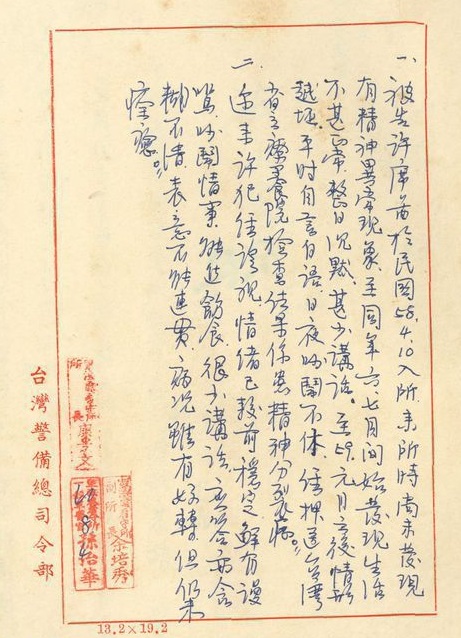 一、被告許席圖於民國58.4.10入所，來所時尚未發現
有精神異常現象，至同年六七月間始發現生活
不甚正常，整日沉默，甚少講話。至59.元月之後情形
越壞，平時自言自語日夜吵鬧不休，經押送台灣
省立療養院檢查結果係患精神分裂病。
二、近來許犯經診視情緒已較前穩定，鮮有謾
罵吵鬧情事，能進飲食，很少講話，應答亦含
糊不清，表意不能連貫，病況雖有好轉但仍未
痊癒。
所長
副所長余培秀
孫怡華
台灣警備總司令部
13.2×19.2